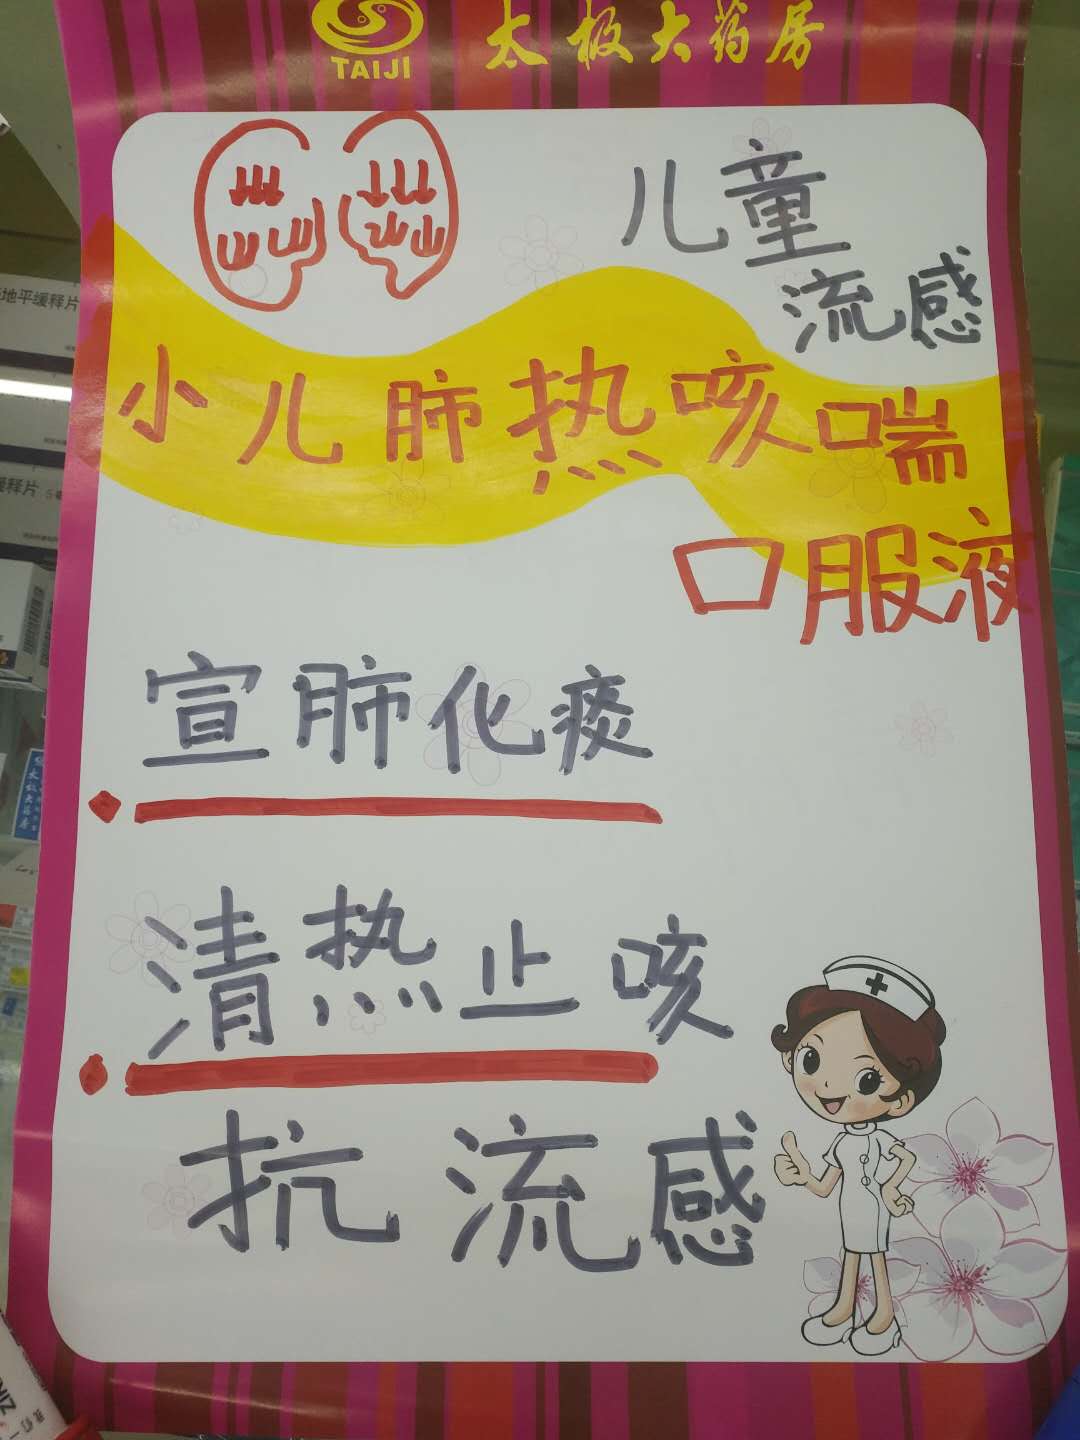 TAIJI
太极大药房
儿童
流感
小儿肺热咳喘
口服液
宣肺化痰
清热止咳
抗流感
地平缓释片
缓释片
太极大药房